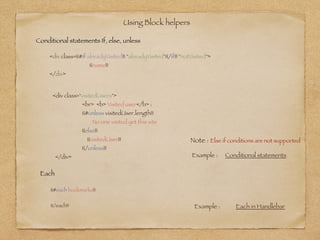 Using Block helpers
Conditional statements If, else, unless
<div class={{#if alreadyVisited}} "alreadyVisited"{{/if}} "NotVisited">
{{name}}
</div>
<div class="visitedUsers">
<br> <b> Visited user</b> :
{{#unless visitedUser.length}}
No one visited yet this site
{{else}}
{{visitedUser}}
Note : Else if conditions are not supported
{{/unless}}
</div>
Example : Conditional statements
Each
{{#each bookmarks}}
{{/each}}
Example : Each in Handlebar